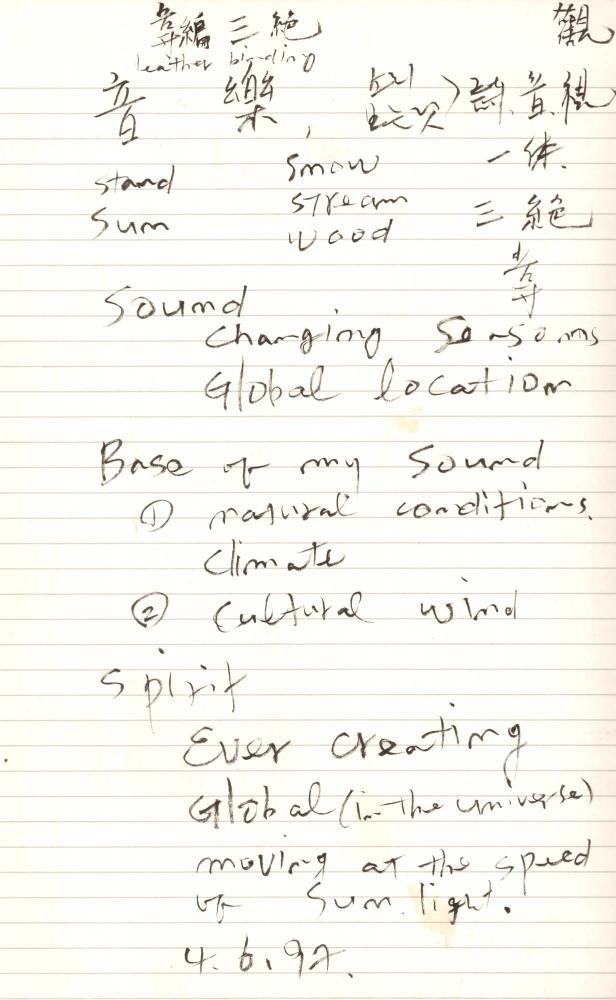 韋編三絶 觀
leather binding
音 樂, 詩, 音, 視
stand snow 一体.
sum stream 三絶
wood 韋
Sound
Changing Seasons
Global location
Base of my Sound
① natural conditions.
Climate
② Cultural wind
Spirit
Ever creating
Global (in the universe)
moving at the speed
of Sun light.
4.6.97.